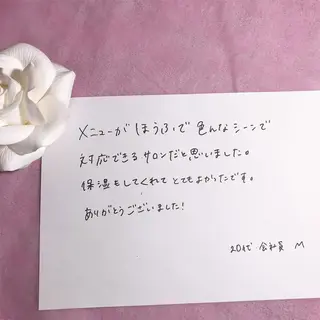 メニューがほうふで色んなシーンで
対応できるサロンだと思いました。
保湿もしてくれてとてもよかったです。
ありがとうございました!
20代 会社員 M